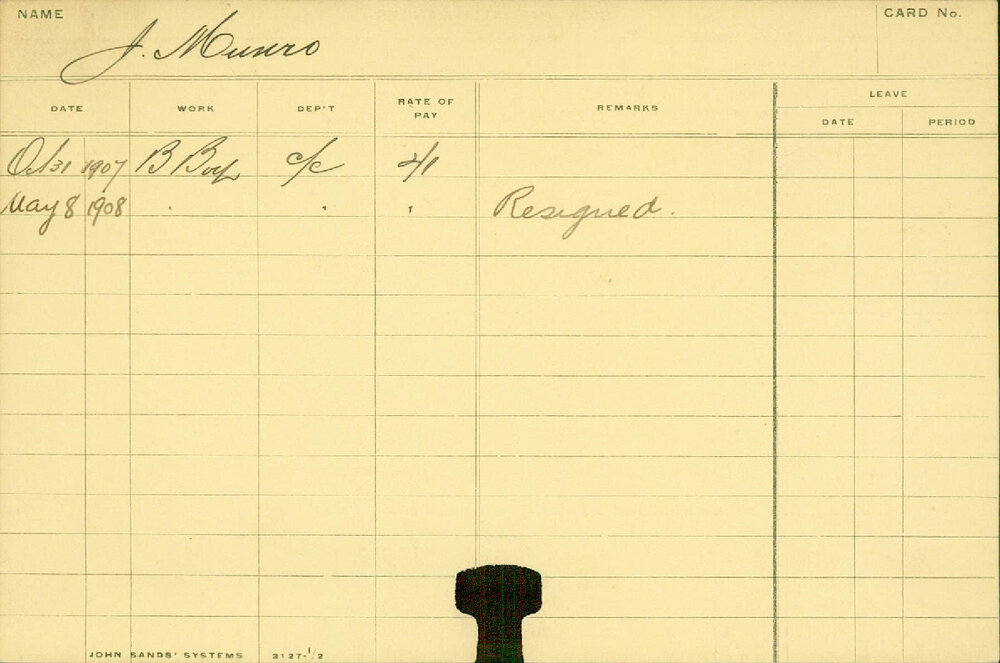 NAME
J. Munro
CARD No.
DATE WORK DEP'T RATE OF PAY REMARKS LEAVE
DATE PERIOD
Oct 31 1907 B Boy c/c
May 8 1908 " " " Resigned.
JOHN SANDS' SYSTEMS 3127-1/2